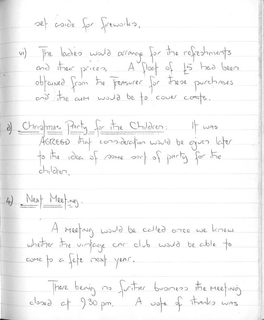 set aside for fireworks.
vi) The ladies would arrange for the refreshments
and their prices. A float of £5 had been
obtained from the Treasurer for these purchases
and the aim would be to cover costs.
3) Christmas Party for the Children. It was
AGREED that consideration would be given later
to the idea of some sort of party for the
children.
4) Next Meeting.
A meeting would be called once we knew
whether the vintage car club would be able to
come to a fete next year.
There being no further business the meeting
closed at 9.30 pm. A vote of thanks was